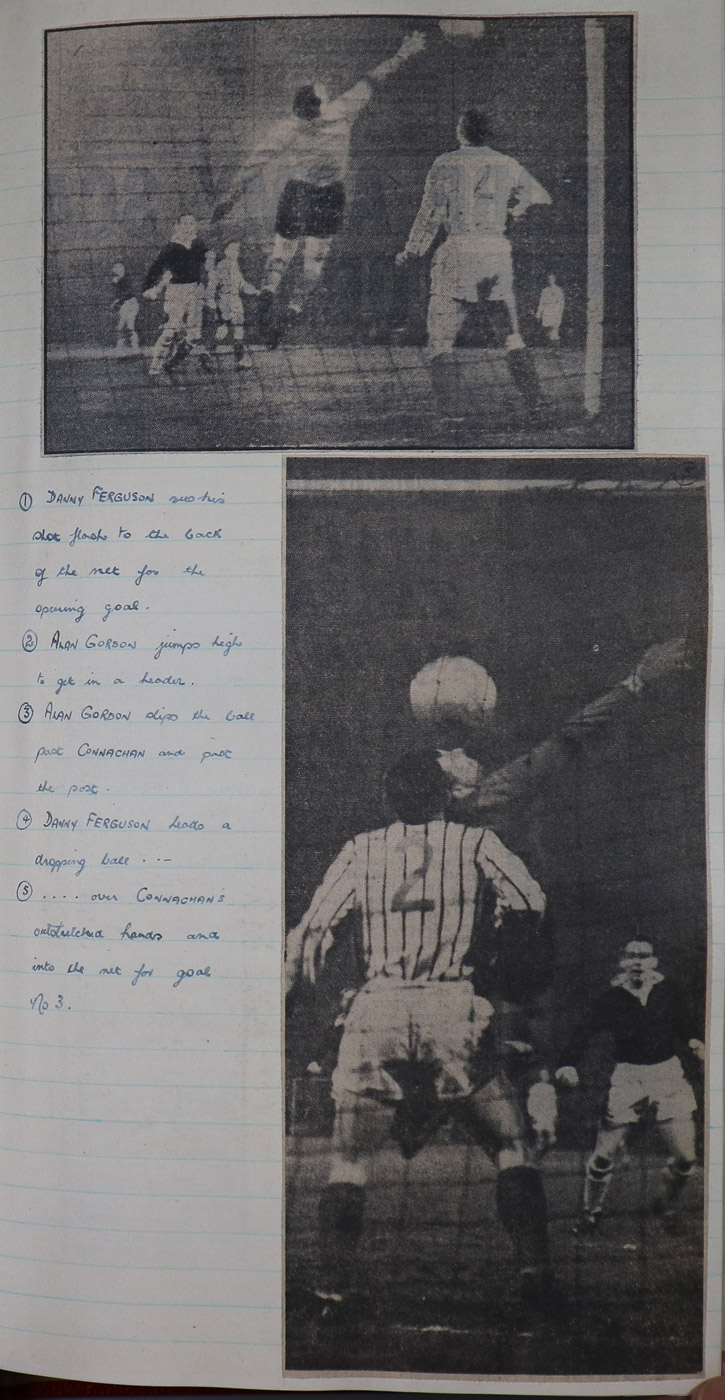 2
5
2
① DANNY FERGUSON sees his
shot flash to the back
of the net for the
opening goal.
② ALAN GORDON jumps high
to get in a header.
③ ALAN GORDON slips the ball
past CONNACHAN and past
the post.
④ DANNY FERGUSON heads a
dropping ball ...
⑤ .... over CONNACHAN'S
outstretched hands and
into the net for goal
No 3.